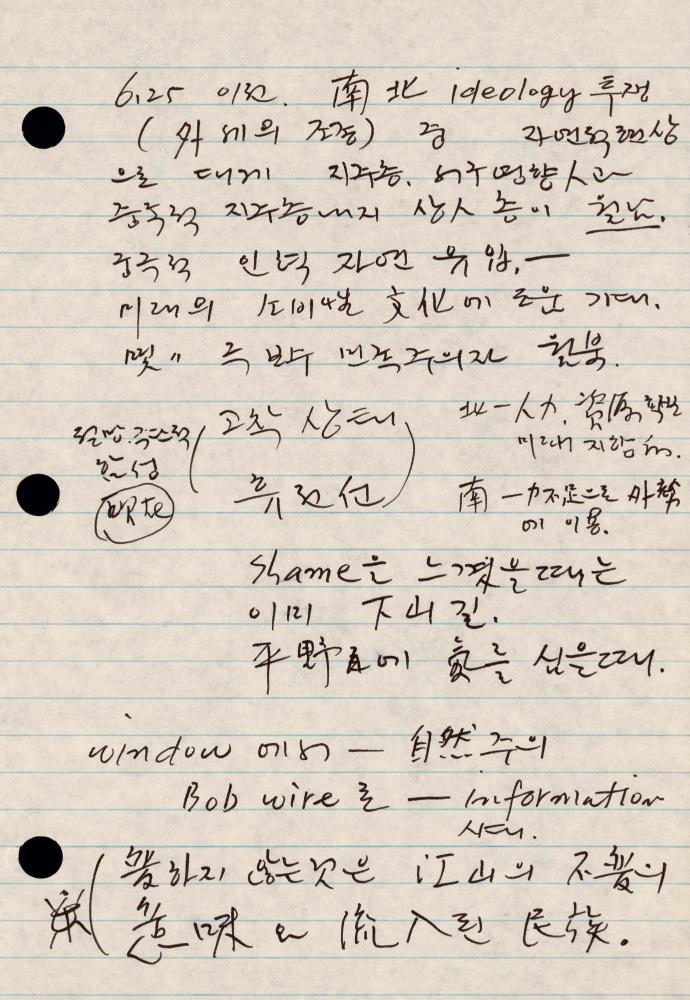 6.25 이전. 南北 ideology 투쟁
(外세의 조종) 중 자연적 현상
으로 대개 지주층, 서구영향人과
중국적 지주층 내지 상人 층이 월남.
중국적 인력 자연 유입.—
미래의 소비성 文化에 조은 기대.
몇〃 극 반수 민족주의자 월북.
절망. 극소적
환성
(고착 상태
휴전선)
北—人力, 資原, 학반
미래 지향的.
南—力不足으로 外勢
에 이용.
Shame을 느꼈을 때는
이미 下山길.
平野에 氣를 심을 때.
window에서 — 自然주의
Bob wire로 — information
시대.
(變하지 않는 것은 江山의 不變의
意味와 流入된 民族.